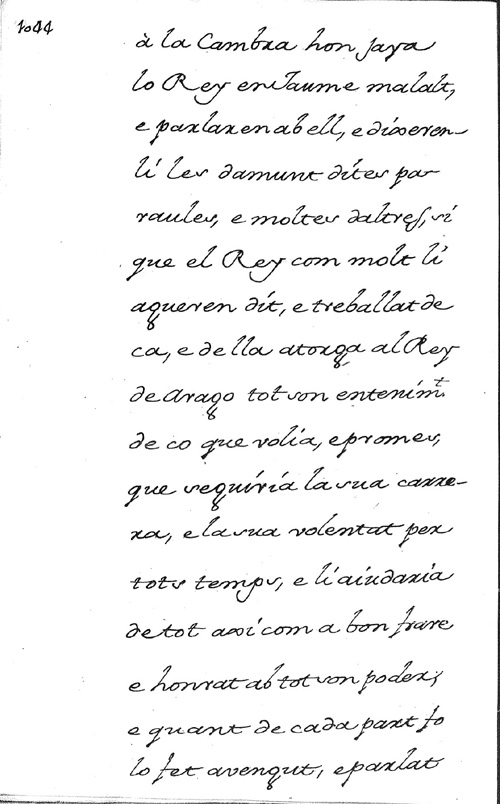 1044
à la Cambra hon jaya
lo Rey en Jaume malalt,
e parlaren ab ell, e dixeren-
li les damunt dites pa-
raules, e moltes daltres, si
que el Rey com molt li
agueren dit, e treballat de
ca, e de lla atorga al Rey
de Arago tot son entenimt.
de co que volia, e promes,
que seguiria la sua carre-
ra, e la sua volentat per
tots temps, e li aiudaria
de tot axi com a bon frare
e honrat ab tot son poder;
e quant de cada part fo
lo fet avengut, e parlat